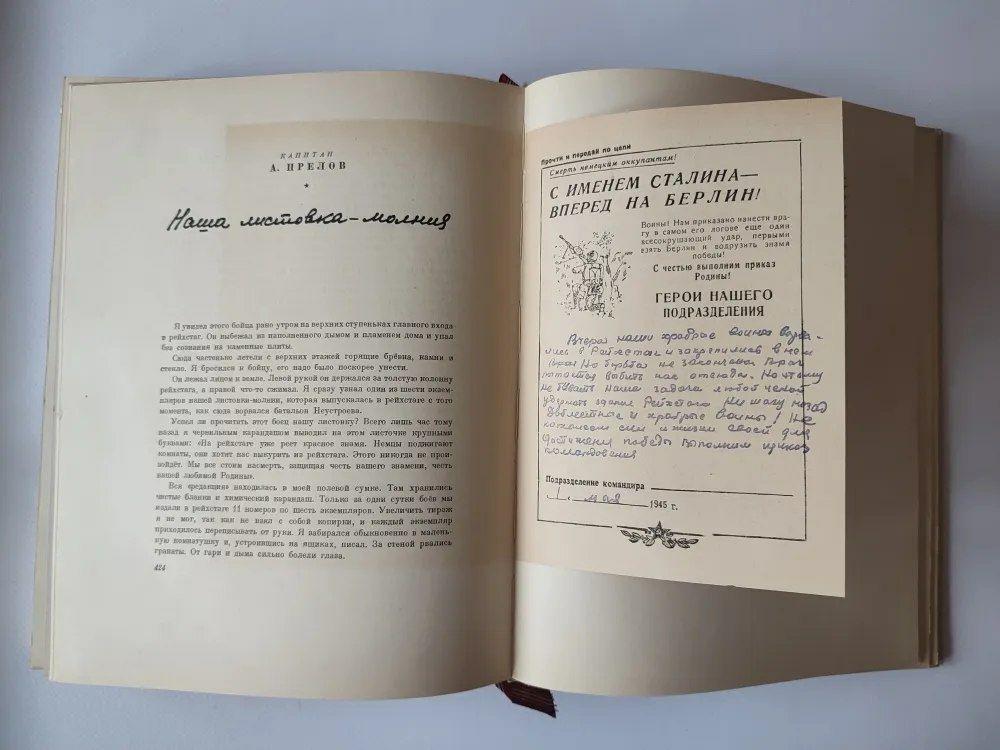 КАПИТАН
А. ПРЕЛОВ
Наша листовка-молния
Я увидел этого бойца рано утром на верхних ступеньках главного входа
в рейхстаг. Он выбежал из наполненного дымом и пламенем дома и упал
без сознания на каменные плиты.
Сюда частенько летели с верхних этажей горящие брёвна, камни и
стекло. Я бросился к бойцу, его надо было поскорее унести.
Он лежал лицом к земле. Левой рукой он держался за толстую колонну
рейхстага, а правой что-то сжимал. Я сразу узнал один из шести экзем-
пляров нашей листовки-молнии, которая выпускалась в рейхстаге с того
момента, как сюда ворвался батальон Неустроева.
Успел ли прочитать этот боец нашу листовку? Всего лишь час тому
назад я чернильным карандашом выводил на этом листочке крупными
буквами: «На рейхстаге уже реет красное знамя. Немцы поджигают
комнаты, они хотят нас выкурить из рейхстага. Этого никогда не про-
изойдёт. Мы все стоим насмерть, защищая честь нашего знамени, честь
нашей любимой Родины».
Вся «редакция» находилась в моей полевой сумке. Там хранились
чистые бланки и химический карандаш. Только за одни сутки боёв мы
издали в рейхстаге 11 номеров по шесть экземпляров. Увеличить тираж
я не мог, так как не взял с собой копирки, и каждый экземпляр
приходилось переписывать от руки. Я забирался обыкновенно в малень-
кую комнатушку и, устроившись на ящиках, писал. За стеной рвались
гранаты. От гари и дыма сильно болели глаза.
424
Прочти и передай по цепи
Смерть немецким оккупантам!
С ИМЕНЕМ СТАЛИНА—
ВПЕРЕД НА БЕРЛИН!
Воины! Нам приказано нанести вра-
гу в самом его логове еще один
всесокрушающий удар, первыми
взять Берлин и водрузить знамя
победы!
С честью выполним приказ
Родины!
ГЕРОИ НАШЕГО
ПОДРАЗДЕЛЕНИЯ
Вчера наши храбрые воины ворва-
лись в Рейхстаг и закрепились в нем
Но борьба не закончена Враг
пытается выбить нас отсюда. Но этому
не бывать Наша задача любой ценой
удержать здание Рейхстага Ни шагу назад
доблестные и храбрые воины! Не
сил и жизни своей для
достижения победы выполним приказ
командования
Подразделение командира
1. мая 1945 г.